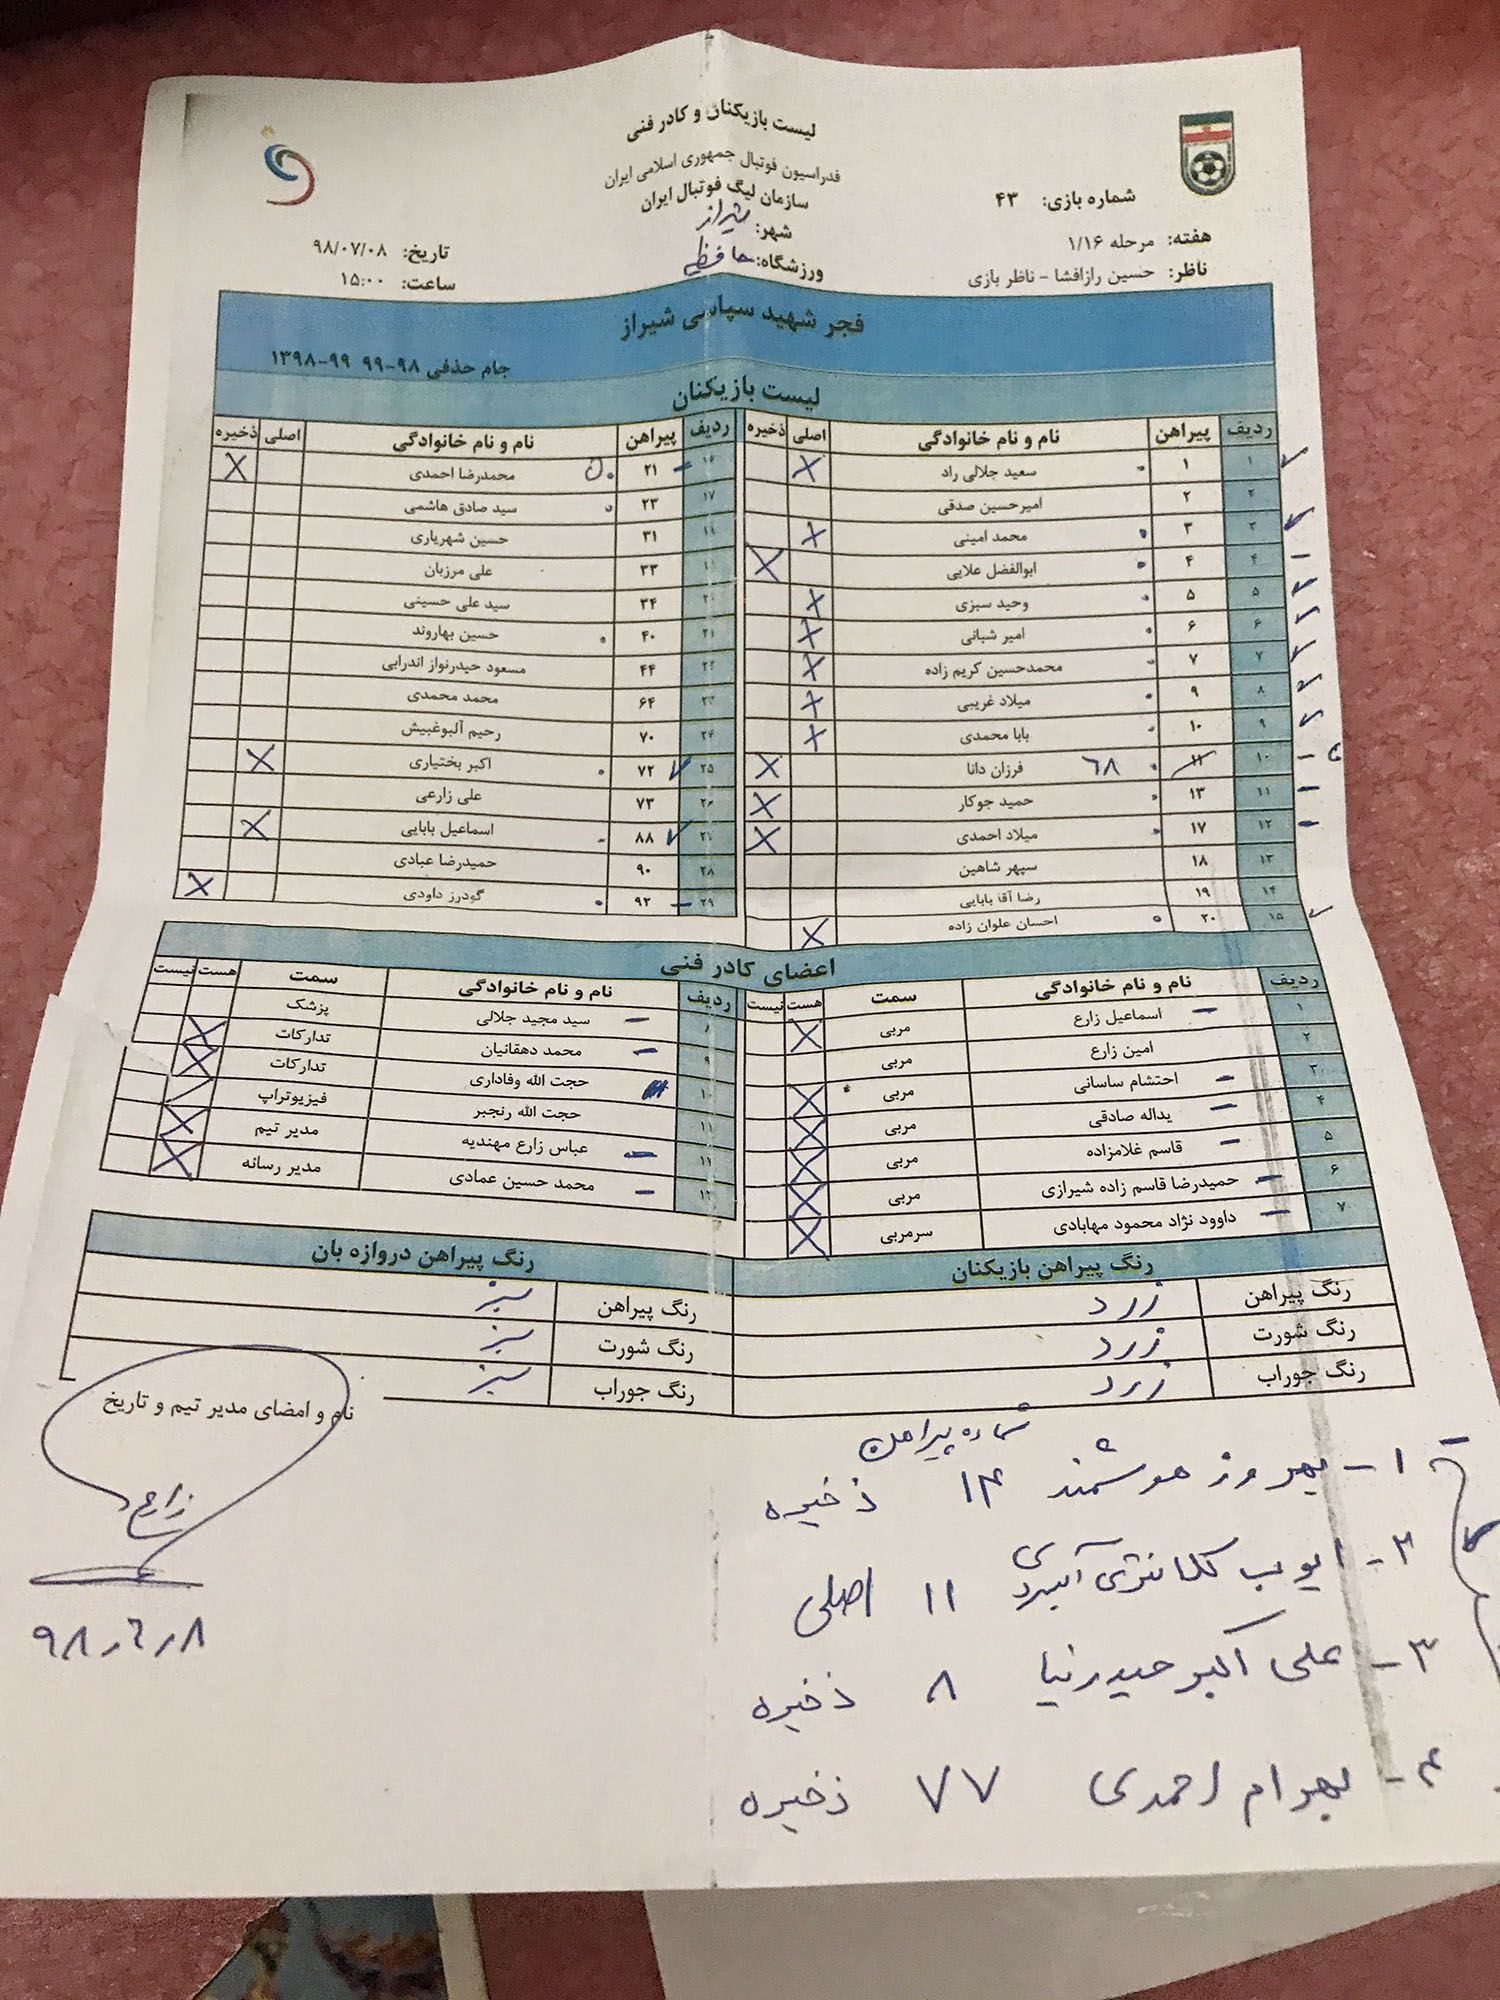 لیست بازیکنان و کادر فنی
فدراسیون فوتبال جمهوری اسلامی ایران
سازمان لیگ فوتبال ایران
شماره بازی: ۴۳
شهر: شیراز
هفته: مرحله ۱/۱۶
ورزشگاه: حافظیه
تاریخ: ۹۸/۰۷/۰۸
ناظر: حسین رازافشا - ناظر بازی
ساعت: ۱۵:۰۰
فجر شهید سپاسی شیراز
جام حذفی ۹۸-۹۹ ۹۹-۱۳۹۸
لیست بازیکنان
ردیف پیراهن نام و نام خانوادگی اصلی ذخیره
۱ ۱ سعید جلالی راد X
۲ ۲ امیرحسین صدقی
۳ ۳ محمد امینی X
۴ ۴ ابوالفضل علایی X
۵ ۵ وحید سبزی X
۶ ۶ امیر شبانی X
۷ ۷ محمدحسین کریم زاده X
۸ ۹ میلاد غریبی X
۹ ۱۰ بابا محمدی X
۱۰ ۱۱ ۶۸ فرزان دانا X
۱۱ ۱۳ حمید جوکار X
۱۲ ۱۷ میلاد احمدی X
۱۳ ۱۸ سپهر شاهین
۱۴ ۱۹ رضا آقا بابایی
۱۵ ۲۰ احسان علوان زاده X
ردیف پیراهن نام و نام خانوادگی اصلی ذخیره
۱۶ ۲۱ محمدرضا احمدی X
۱۷ ۲۳ سید صادق هاشمی
۱۸ ۳۱ حسین شهریاری
۳۳ علی مرزبان
۳۴ سید علی حسینی
۲۱ ۴۰ حسین بهاروند
۲۲ ۴۴ مسعود حیدرنواز اندرابی
۲۳ ۶۴ محمد محمدی
۲۴ ۷۰ رحیم آلبوغبیش
۲۵ ۷۲ اکبر بختیاری X
۲۶ ۷۳ علی زارعی
۸۸ اسماعیل بابایی X
۲۸ ۹۰ حمیدرضا عبادی
۲۹ ۹۲ گودرز داودی X
اعضای کادر فنی
ردیف نام و نام خانوادگی سمت هست نیست
۱ اسماعیل زارع مربی X
۲ امین زارع مربی
۳ احتشام ساسانی مربی X
۴ یداله صادقی مربی X
۵ قاسم غلامزاده مربی X
۶ حمیدرضا قاسم زاده شیرازی مربی X
۷ داوود نژاد محمود مهابادی سرمربی X
ردیف نام و نام خانوادگی سمت هست نیست
۸ سید مجید جلالی پزشک
۹ محمد دهقانیان تدارکات X
۱۰ حجت الله وفاداری تدارکات X
۱۱ حجت الله رنجبر فیزیوتراپ
عباس زارع مهندیه مدیر تیم X
محمد حسین عمادی مدیر رسانه X
رنگ پیراهن بازیکنان
رنگ پیراهن زرد
رنگ شورت زرد
رنگ جوراب زرد
رنگ پیراهن دروازه بان
رنگ پیراهن سبز
رنگ شورت سبز
رنگ جوراب سبز
نام و امضای مدیر تیم و تاریخ
زارع
شماره پیراهن
۱- بهروز هوشمند ۱۴ ذخیره
۲- ایوب کلانتری ۱۱ اصلی
۳- علی اکبر حیدرنیا ۸ ذخیره
۴- بهرام احمدی ۷۷ ذخیره